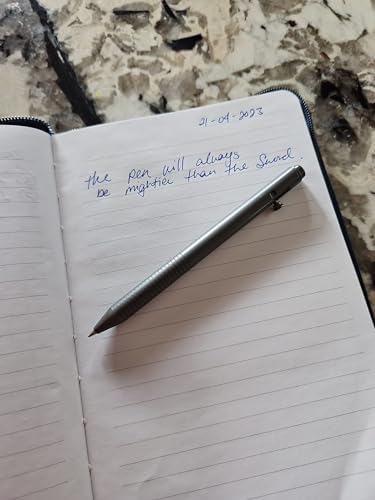 21-04-2023
the pen will always
be mightier than the Sword.